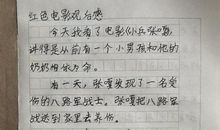 红色电影观后感
今天我看了电影《小兵张嘎》,
讲得是从前有一个小男孩和他的
奶奶相依为命。
有一天,张嘎发现了一名受
伤的八路军战士。张嘎把八路军
战士送到家里去养伤。